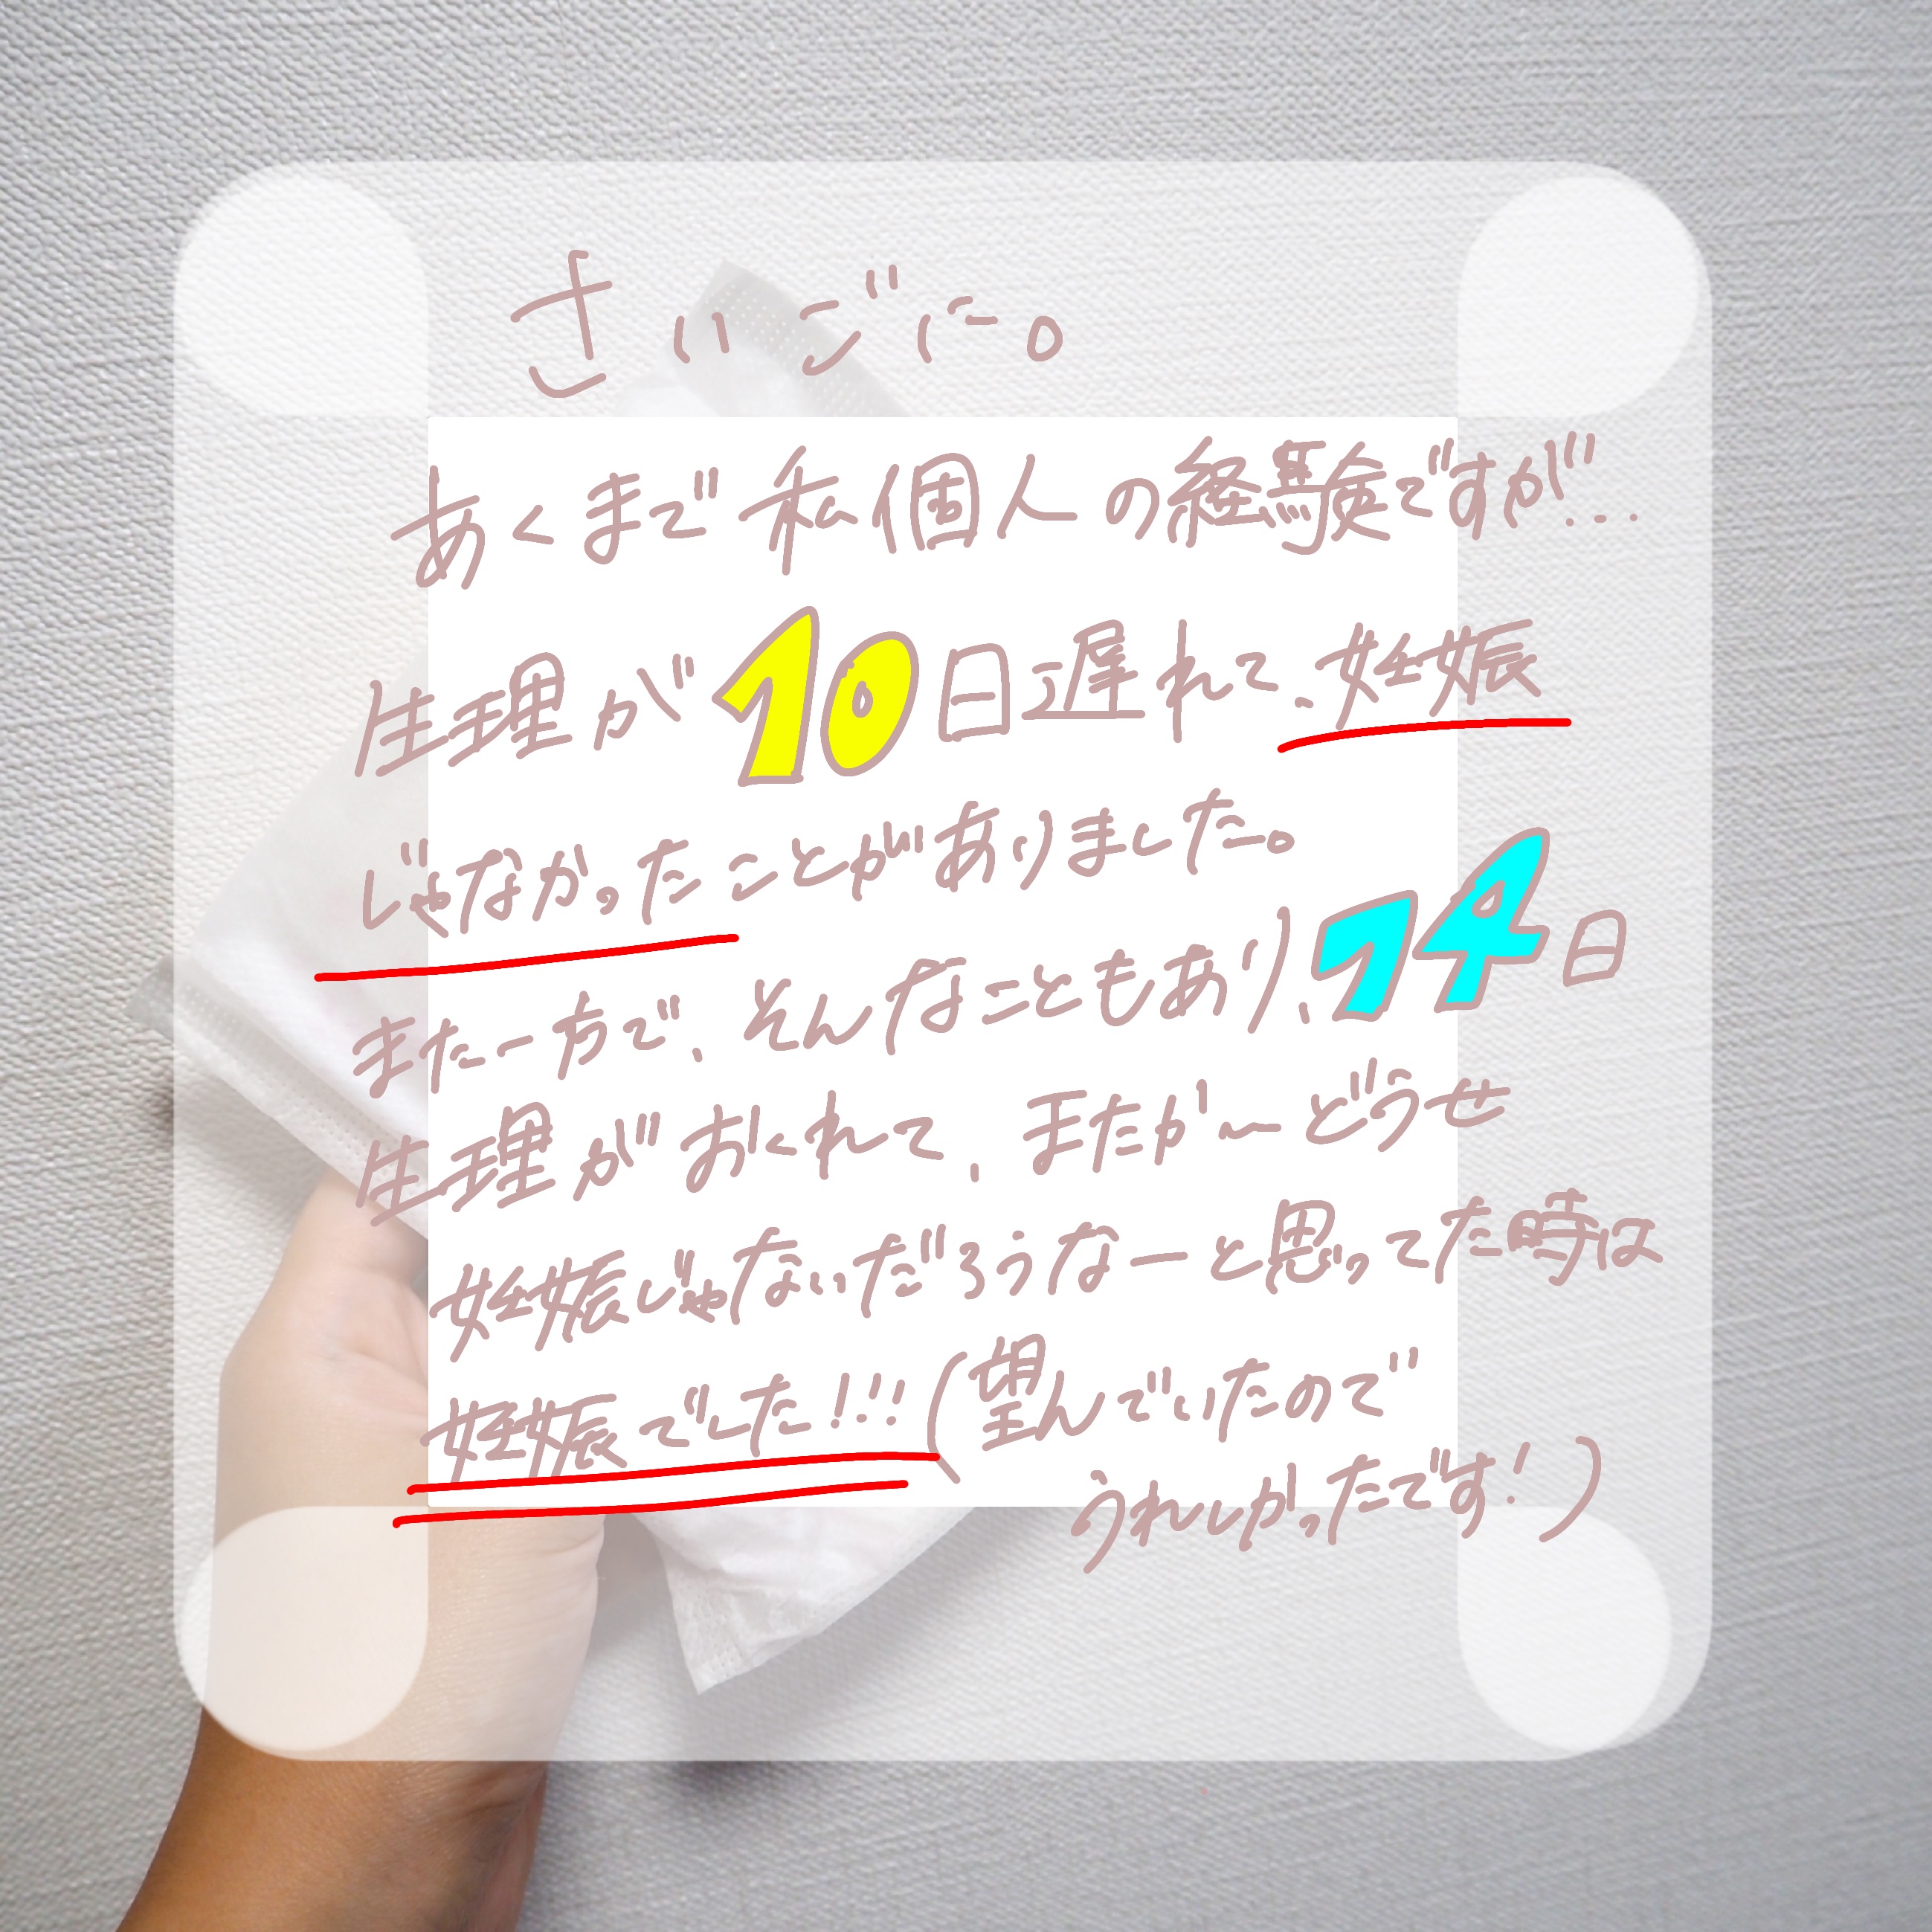 さいごに。
あくまで私個人の経験ですが…
生理が10日遅れて、妊娠
じゃなかったことがありました。
また一方で、そんなこともあり、14日
生理がおくれて、またか〜どうせ
妊娠じゃないだろうなーと思ってた時は
妊娠でした!!!(望んでいたので
うれしかったです!)